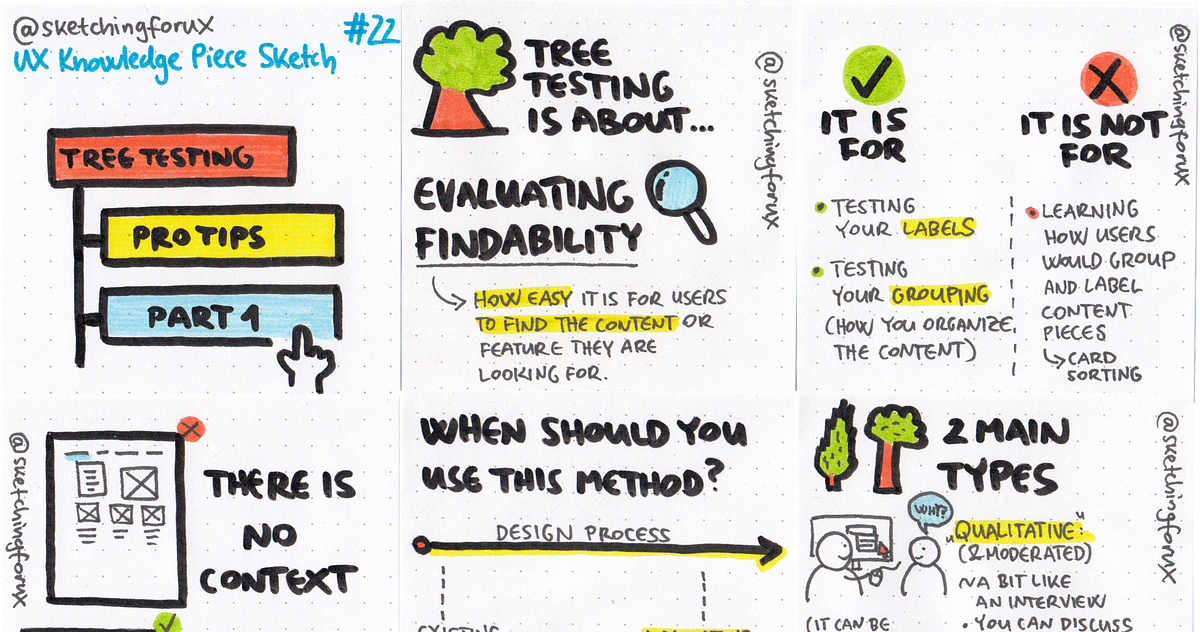 @sketchingforux
#22
UX Knowledge Piece Sketch
TREE TESTING
PRO TIPS
PART 1
TREE
TESTING
IS ABOUT...
@sketchingforux
EVALUATING
FINDABILITY
HOW EASY IT IS FOR USERS
TO FIND THE CONTENT OR
FEATURE THEY ARE
LOOKING FOR.
@sketchingforux
IT IS
FOR
TESTING
YOUR LABELS
TESTING
YOUR GROUPING
(HOW YOU ORGANIZE
THE CONTENT)
IT IS NOT
FOR
LEARNING
HOW USERS
WOULD GROUP
AND LABEL
CONTENT
PIECES
CARD
SORTING
@sketchingforux
THERE IS
NO
CONTEXT
WHEN SHOULD YOU
USE THIS METHOD?
DESIGN PROCESS
EXISTING
2 MAIN
TYPES
@sketchingforux
WHY?
"QUALITATIVE"
(& MODERATED)
~A BIT LIKE
AN INTERVIEW
• YOU CAN DISCUSS
(IT CAN BE